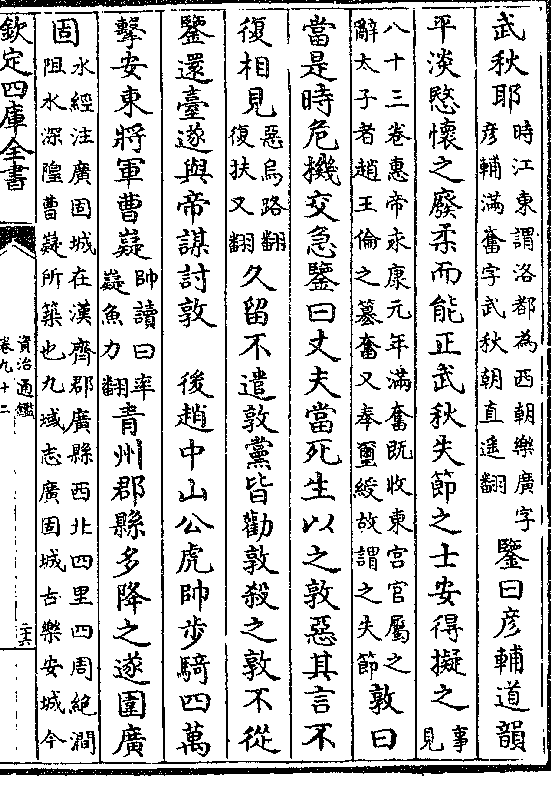 武秋耶時江東謂洛都為西朝樂廣字彦輔滿奮字武秋朝直遥翻鑒曰彦輔道韻
平淡愍懷之廢柔而能正武秋失節之士安得擬之事見
八十三卷惠帝永康元年滿奮既收東宫官屬之辭太子者趙王倫之簒奮又奉璽綬故謂之失節敦曰
當是時危機交急鑒曰丈夫當死生以之敦惡其言不
復相見惡烏路翻復扶又翻久留不遣敦黨皆勸敦殺之敦不從
鑒還臺遂與帝謀討敦　後趙中山公虎帥步騎四萬
擊安東將軍曹嶷帥讀曰率嶷魚力翻青州郡縣多降之遂圍廣
固水經注廣固城在漢齊郡廣縣西北四里四周絶澗阻水深隍曹嶷所築也九域志廣固城古樂安城今
欽定四庫全書
資治通鑑
卷九十二
二六